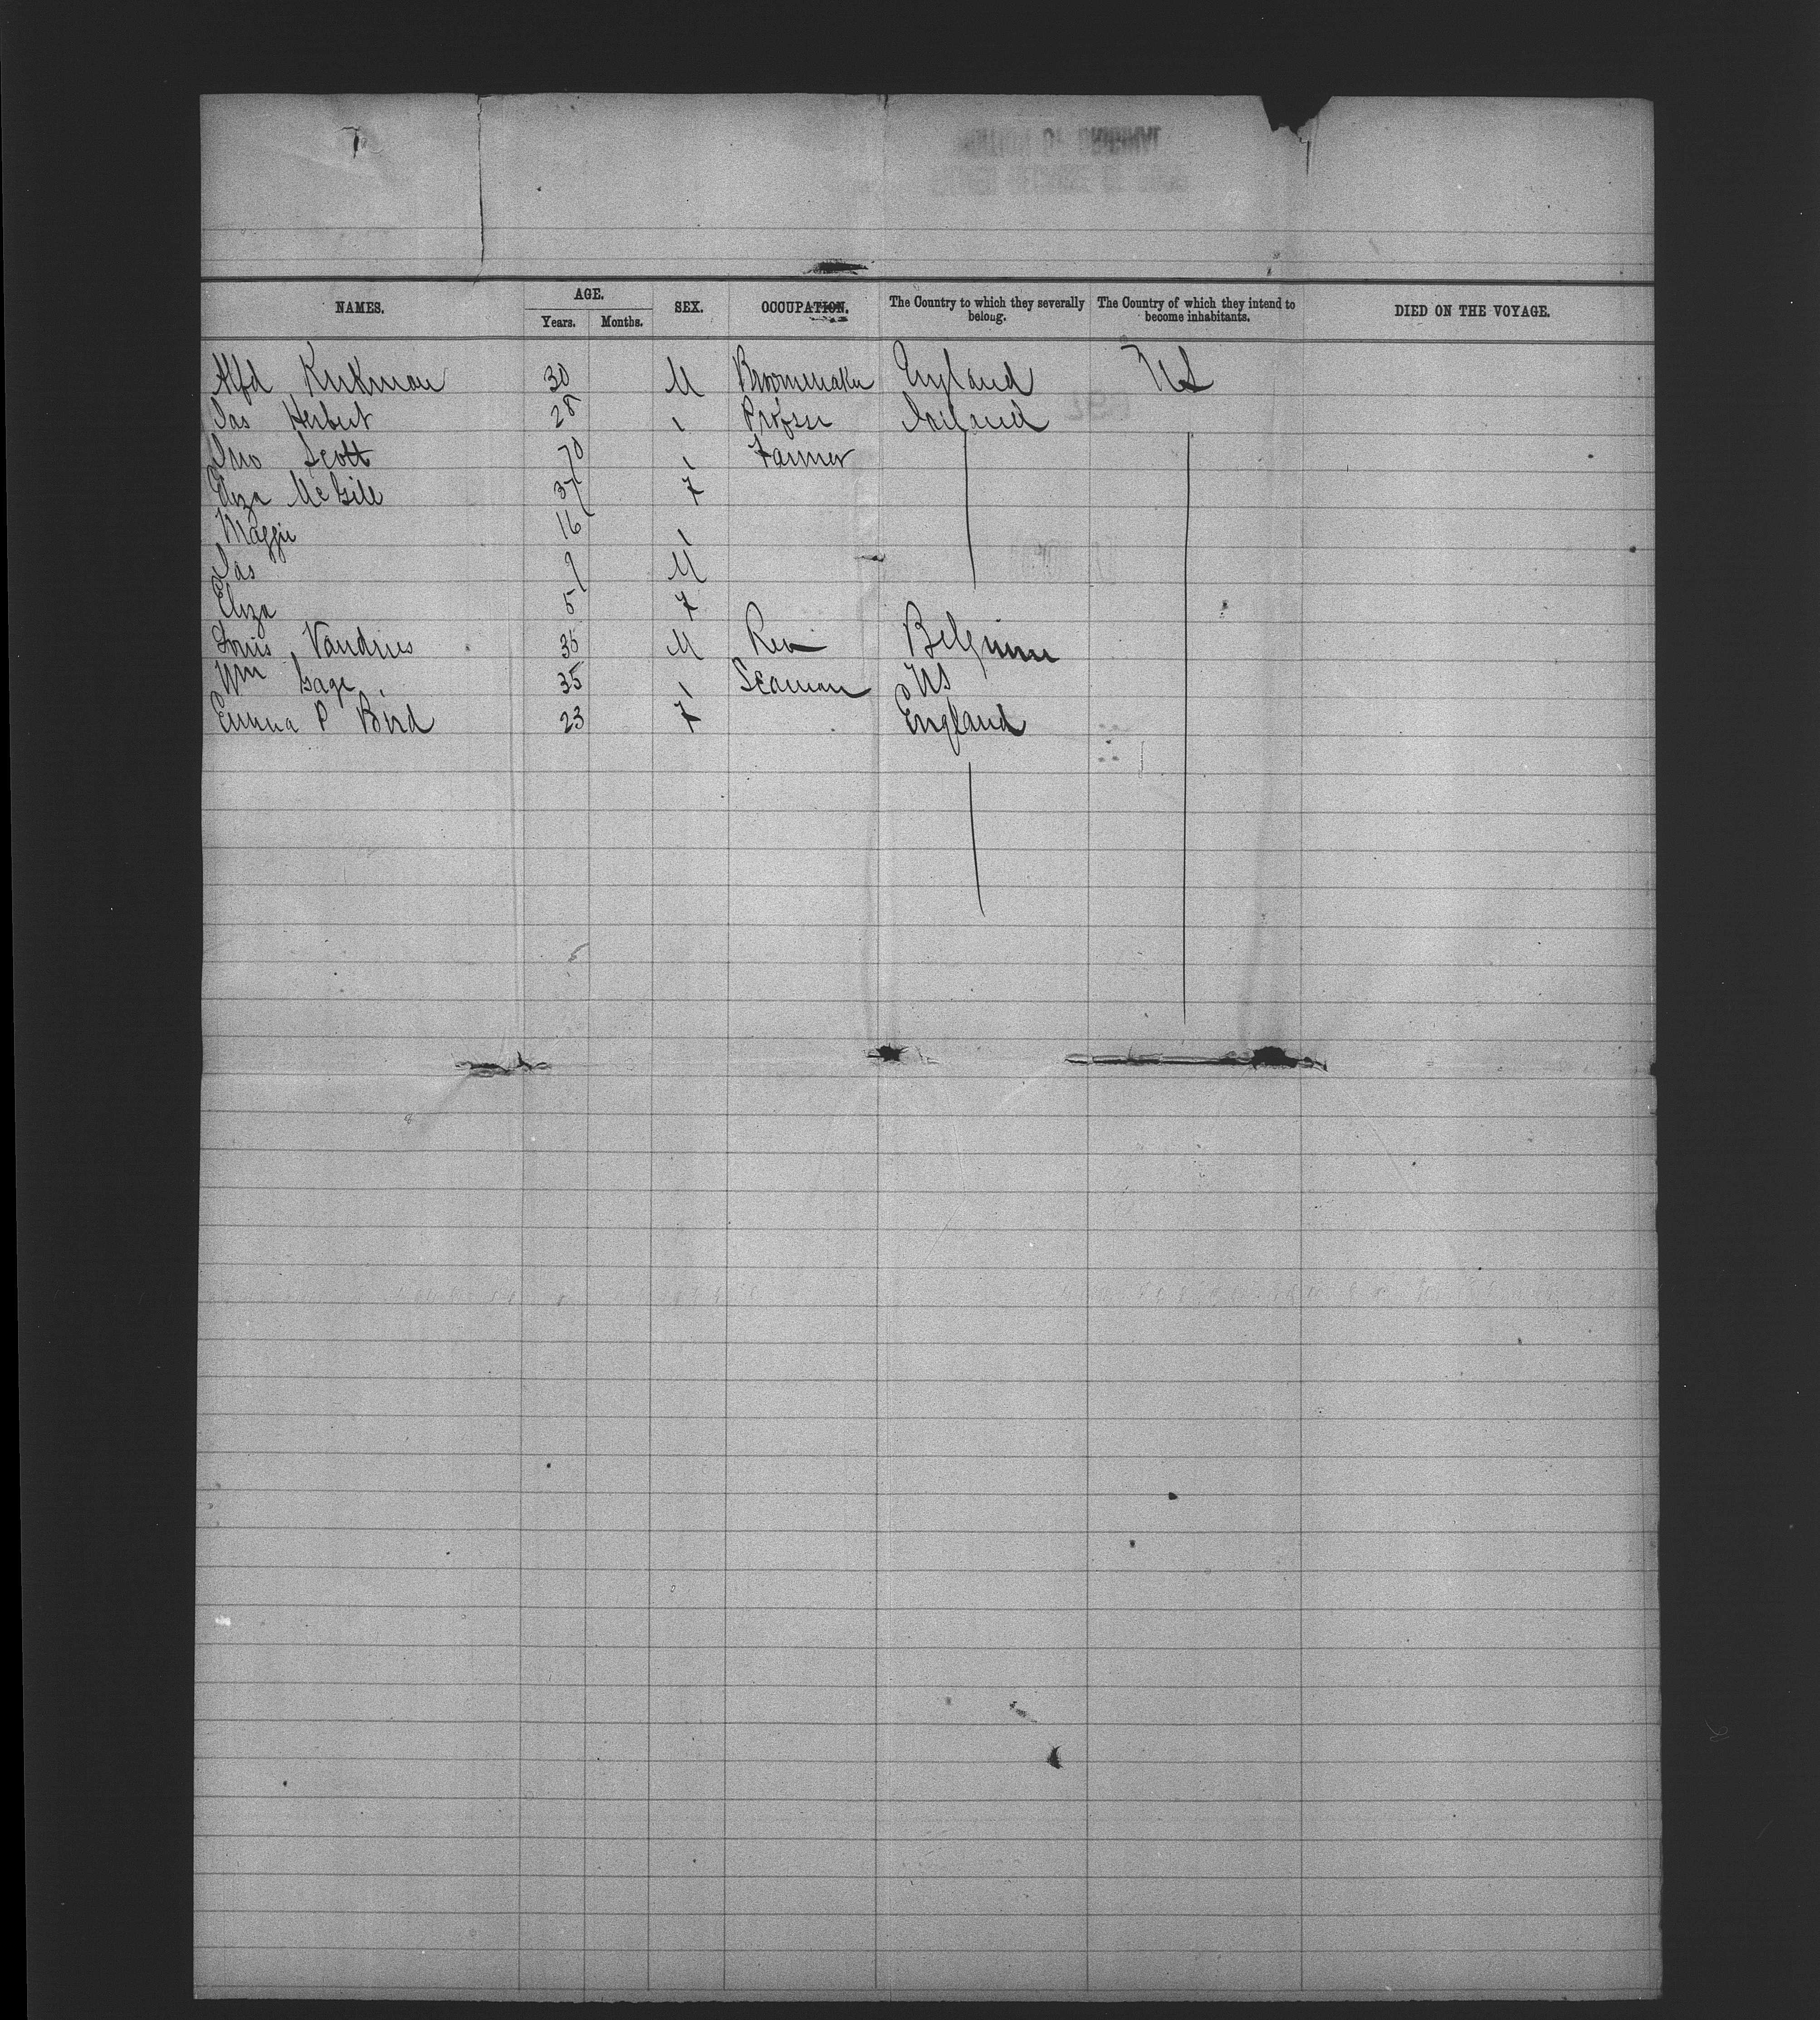 NAMES. AGE. SEX. OCCUPATION. The Country to which they severally belong. The Country of which they intend to become inhabitants. DIED ON THE VOYAGE.
Years. Months.
Alfd Kirkman 30 M Broommaker England US
Jas Herbert 28 " Profssr Ireland
Jno Scott 70 " Farmer
Eliza McGill 37 F
Maggie 16 "
Jas 9 M
Eliza 5 F
Louis Vandries 35 M Rev Belgium
Wm Gage 35 " Seaman US
Emma P Bird 23 F England